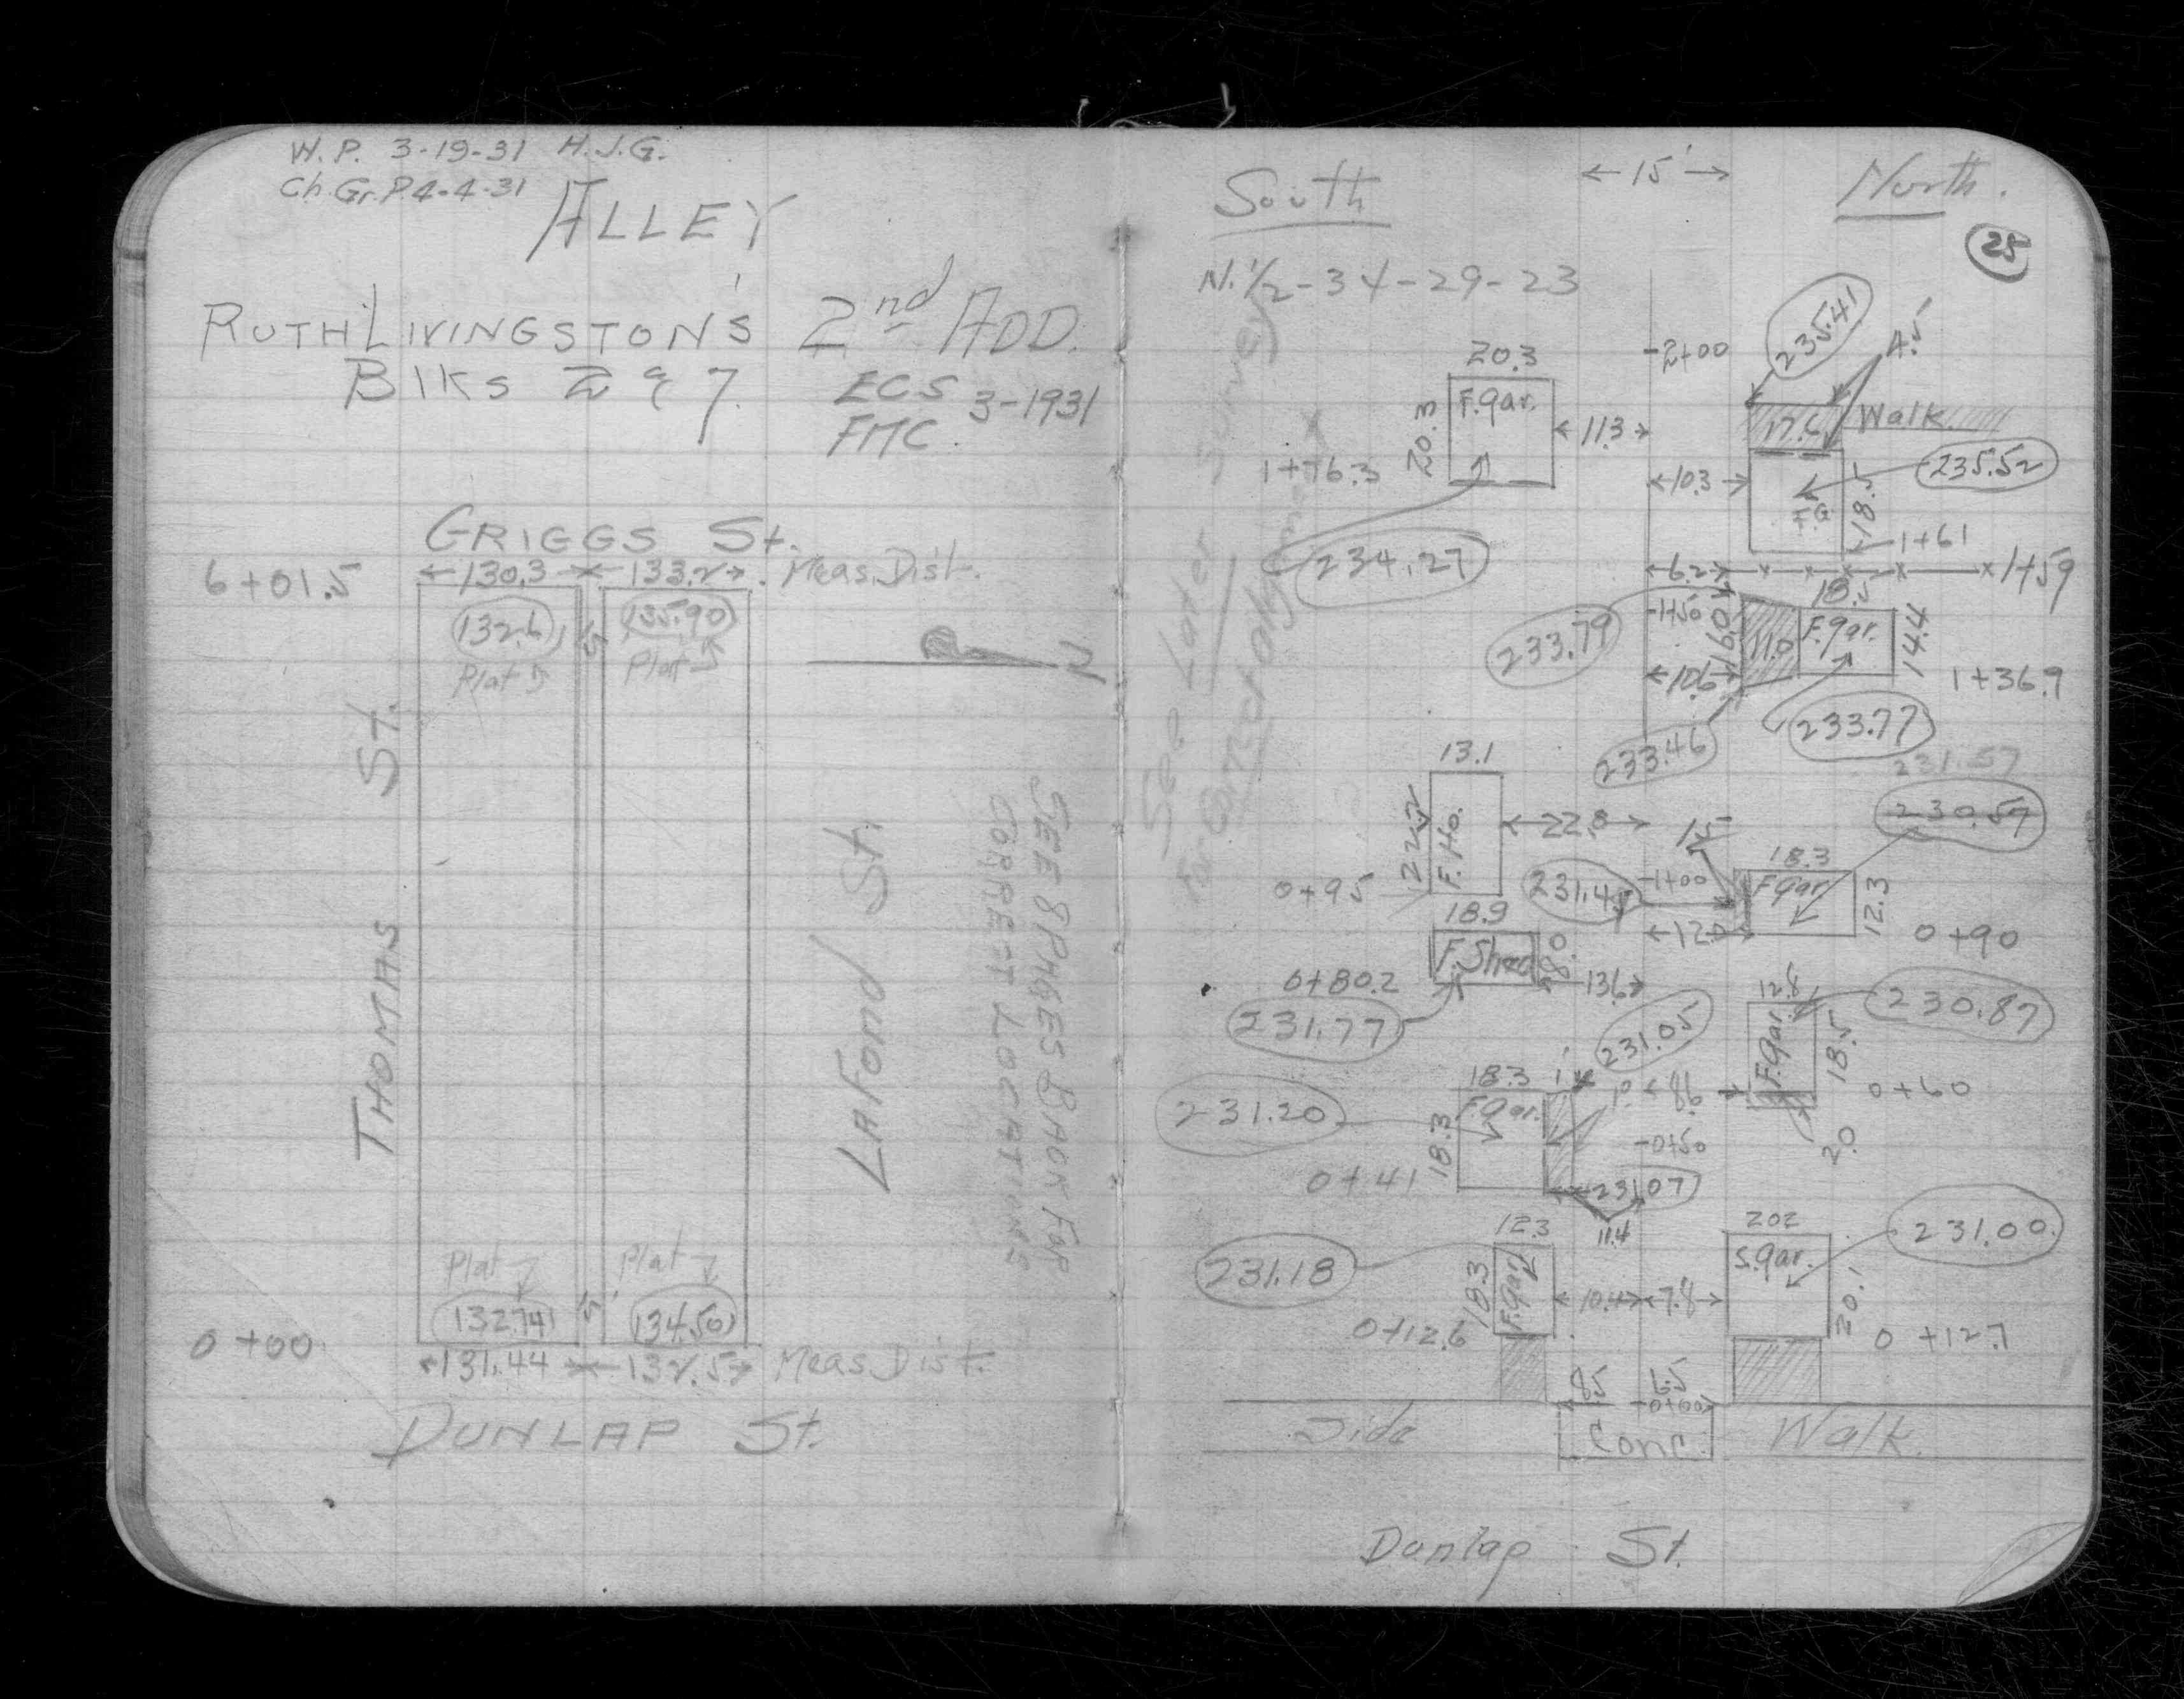 W.P. 3-19-31 H.J.G.
Ch.Gr.P. 4-4-31
ALLEY
RUTH LIVINGSTON'S 2nd ADD.
Blks 2 & 7.
ECS 3-1931
FMC.
GRIGGS St.
6+01.5
130.3
133.2
Meas. Dist.
132.6
135.90
15
Plat
Plat
N
THOMAS St.
LaFond St.
SEE 8 PAGES BACK FOR
CORRECT LOCATIONS
Plat
Plat
132.74
15'
134.50
0+00
131.44
132.5
Meas. Dist.
DUNLAP St.
South
15'
North.
25
N.1/2-34-29-23
See Later Survey
For
235.41
4.5
2+00
20.3
F.gar.
20.3
11.3
17.6
Walk
1+76.3
10.3
235.52
F.G
18.5
234.27
1+61
6.2
1+59
18.5
1+50
16.0
11.0
F.gar.
14.4
233.79
10.6
1+36.9
233.46
233.77
231.57
13.1
22.2
F.Ho.
22.8
1.5
230.57
18.3
0+95
231.4
1+00
F.gar
12.3
18.9
12.0
0+90
F.Shed
8.0
0+80.2
13.6
12.8
230.87
231.77
231.05
F.gar.
18.5
18.3
1'
8.6
0+60
231.20
F.gar.
18.3
0+50
2.0
0+41
231.07
11.4
12.3
20.2
231.00
231.18
18.3
F.gar
S.gar.
10.4
7.8
20.1
0+12.6
0+12.7
8.5
6.5
0+00
Side
Conc.
Walk.
Dunlap St.